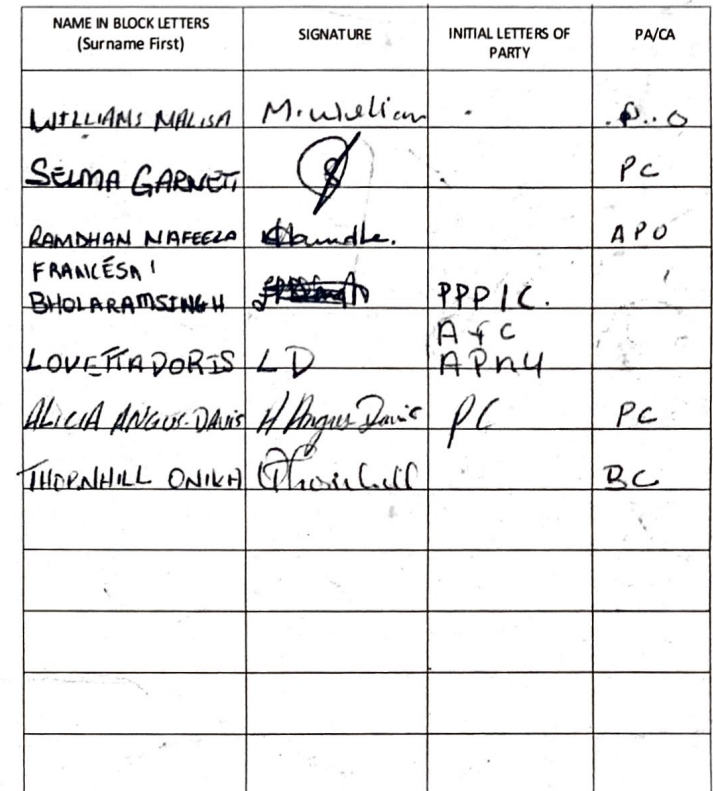 NAME IN BLOCK LETTERS
(Surname First)
SIGNATURE
INITIAL LETTERS OF
PARTY
PA/CA
WILLIAMS MALISA M. William . P..O
SELMA GARNETT PC
RAMDHAN NAFEEZA APO
FRANCESA
BHOLARAMSINGH PPP/C.
AFC
LOVETTA DORIS LD APNU
ALICIA ANGUS-DAVIS A Angus-Davis PC PC
THORNHILL ONIKA OThornhill BC